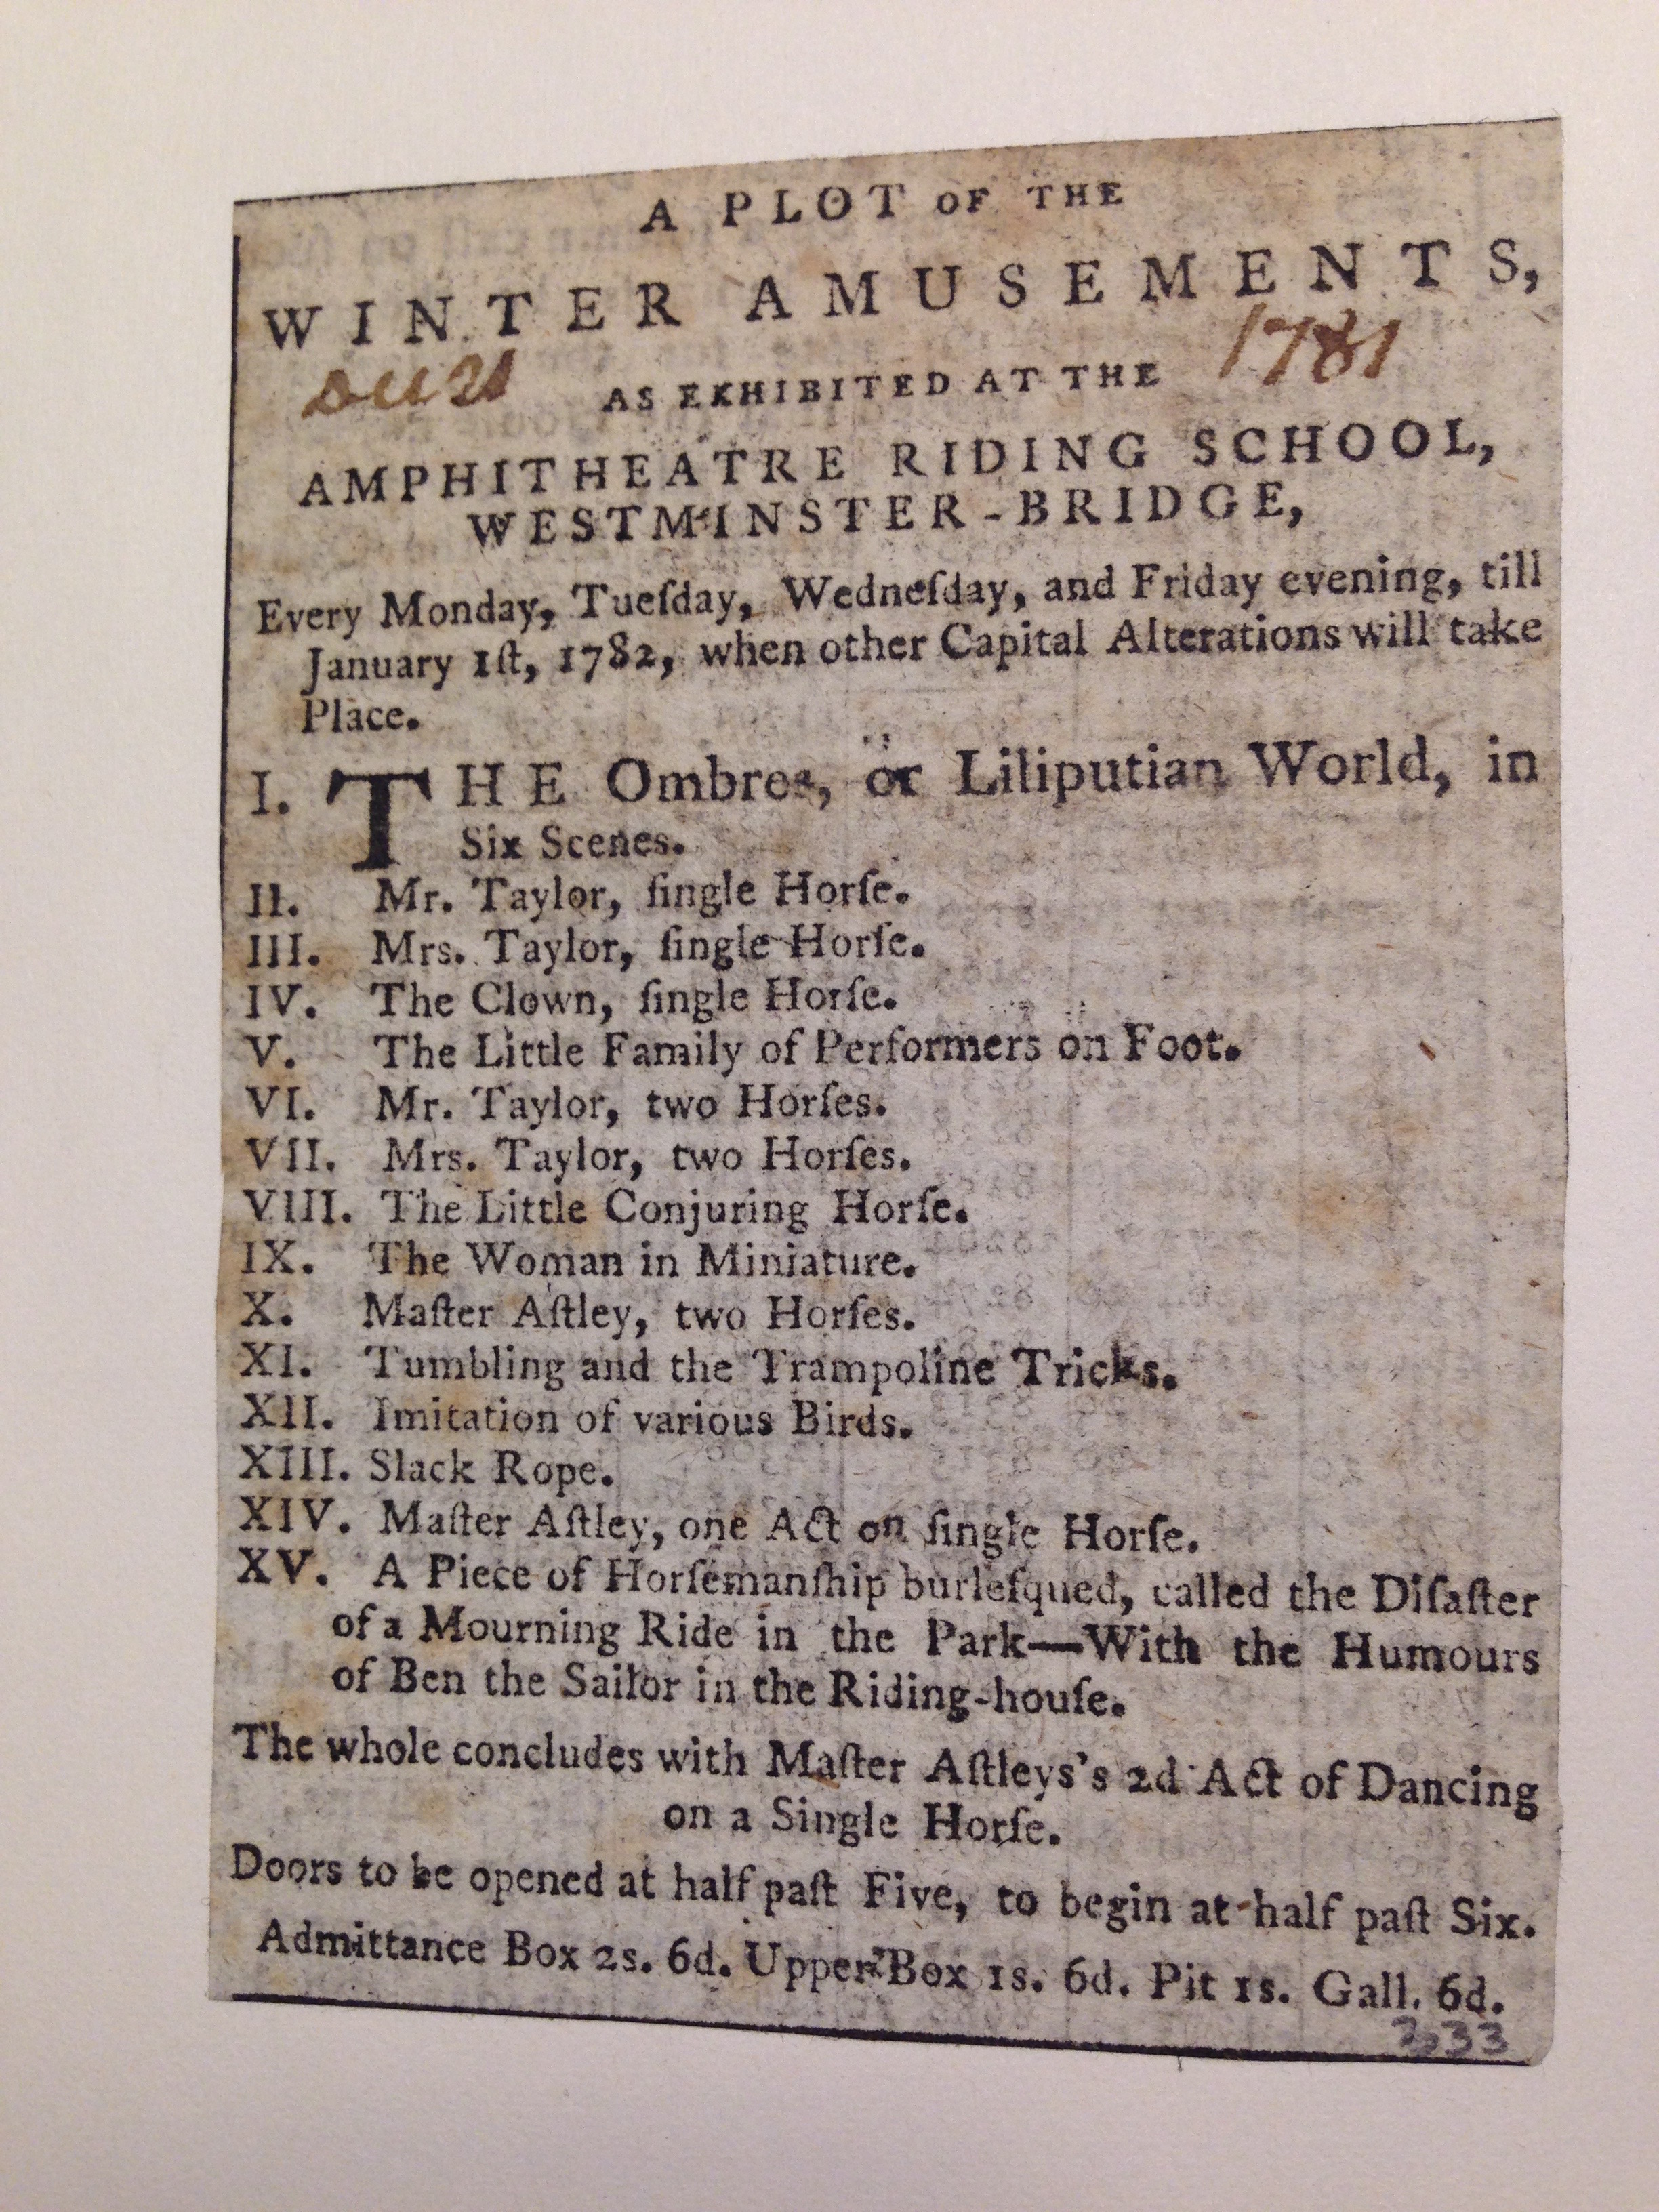 A PLOT OF THE
WINTER AMUSEMENTS,
1781
AS EXHIBITED AT THE
AMPHITHEATRE RIDING SCHOOL,
WESTMINSTER-BRIDGE,
Every Monday, Tueſday, Wedneſday, and Friday evening, till
January 1ſt, 1782, when other Capital Alterations will take
Place.
I. THE Ombres, or Liliputian World, in
Six Scenes.
II. Mr. Taylor, ſingle Horſe.
III. Mrs. Taylor, ſingle Horſe.
IV. The Clown, ſingle Horſe.
V. The Little Family of Performers on Foot.
VI. Mr. Taylor, two Horſes.
VII. Mrs. Taylor, two Horſes.
VIII. The Little Conjuring Horſe.
IX. The Woman in Miniature.
X. Maſter Aſtley, two Horſes.
XI. Tumbling and the Trampoline Tricks.
XII. Imitation of various Birds.
XIII. Slack Rope.
XIV. Maſter Aſtley, one Act on ſingle Horſe.
XV. A Piece of Horſemanſhip burleſqued, called the Diſaſter
of a Mourning Ride in the Park—With the Humours
of Ben the Sailor in the Riding-houſe.
The whole concludes with Maſter Aſtleys's 2d Act of Dancing
on a Single Horſe.
Doors to be opened at half paſt Five, to begin at half paſt Six.
Admittance Box 2s. 6d. Upper Box 1s. 6d. Pit 1s. Gall. 6d.